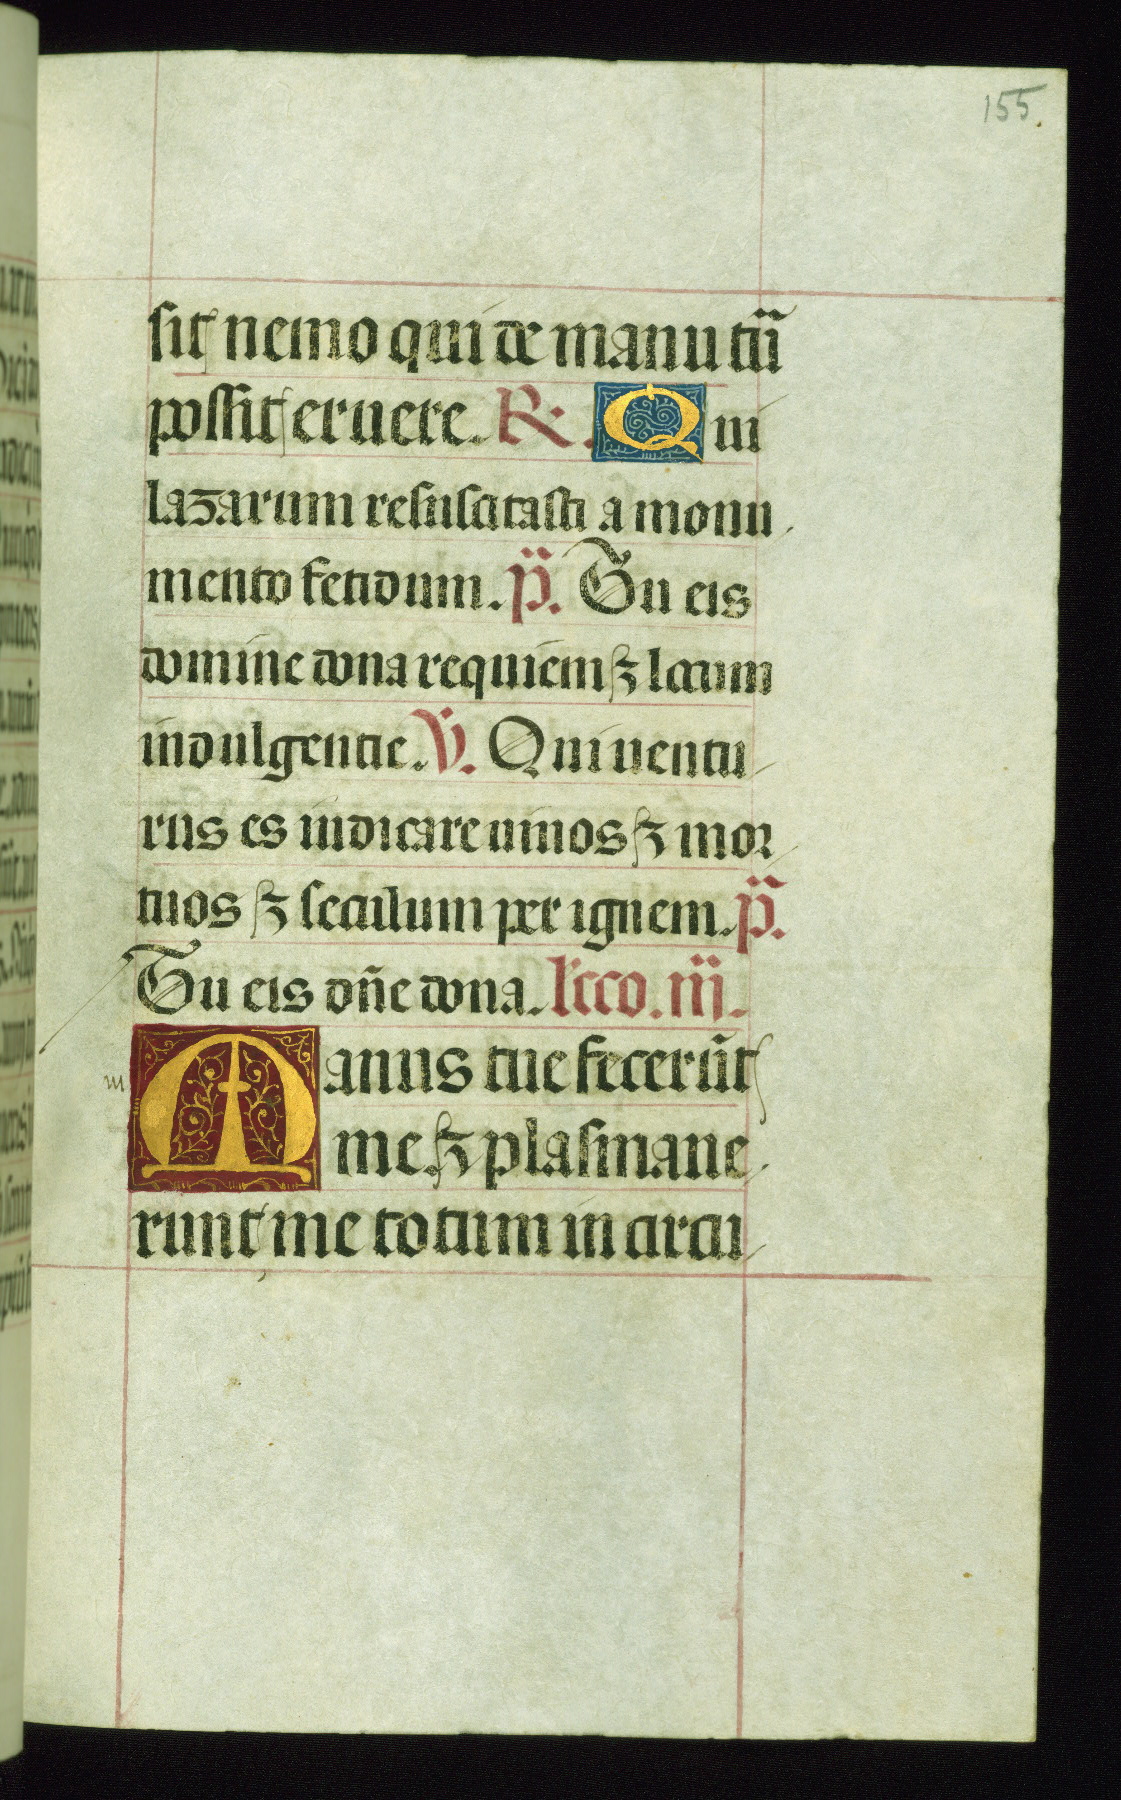 155.
sit nemo qui de manu tūā
possit eruere. R. Qui
lazarum resuscitasti a monu
mento fetidum. p̄. Tu eis
domine dona requiem ⁊ locum
indulgentie. V. Qui uentu
rus es iudicare uiuos ⁊ mor
tuos ⁊ seculum per ignem. p̄.
Tu eis dn̄e dona. lcco. iii.
Manus tue fecerūt
me ⁊ plasmaue
runt me totum in circui